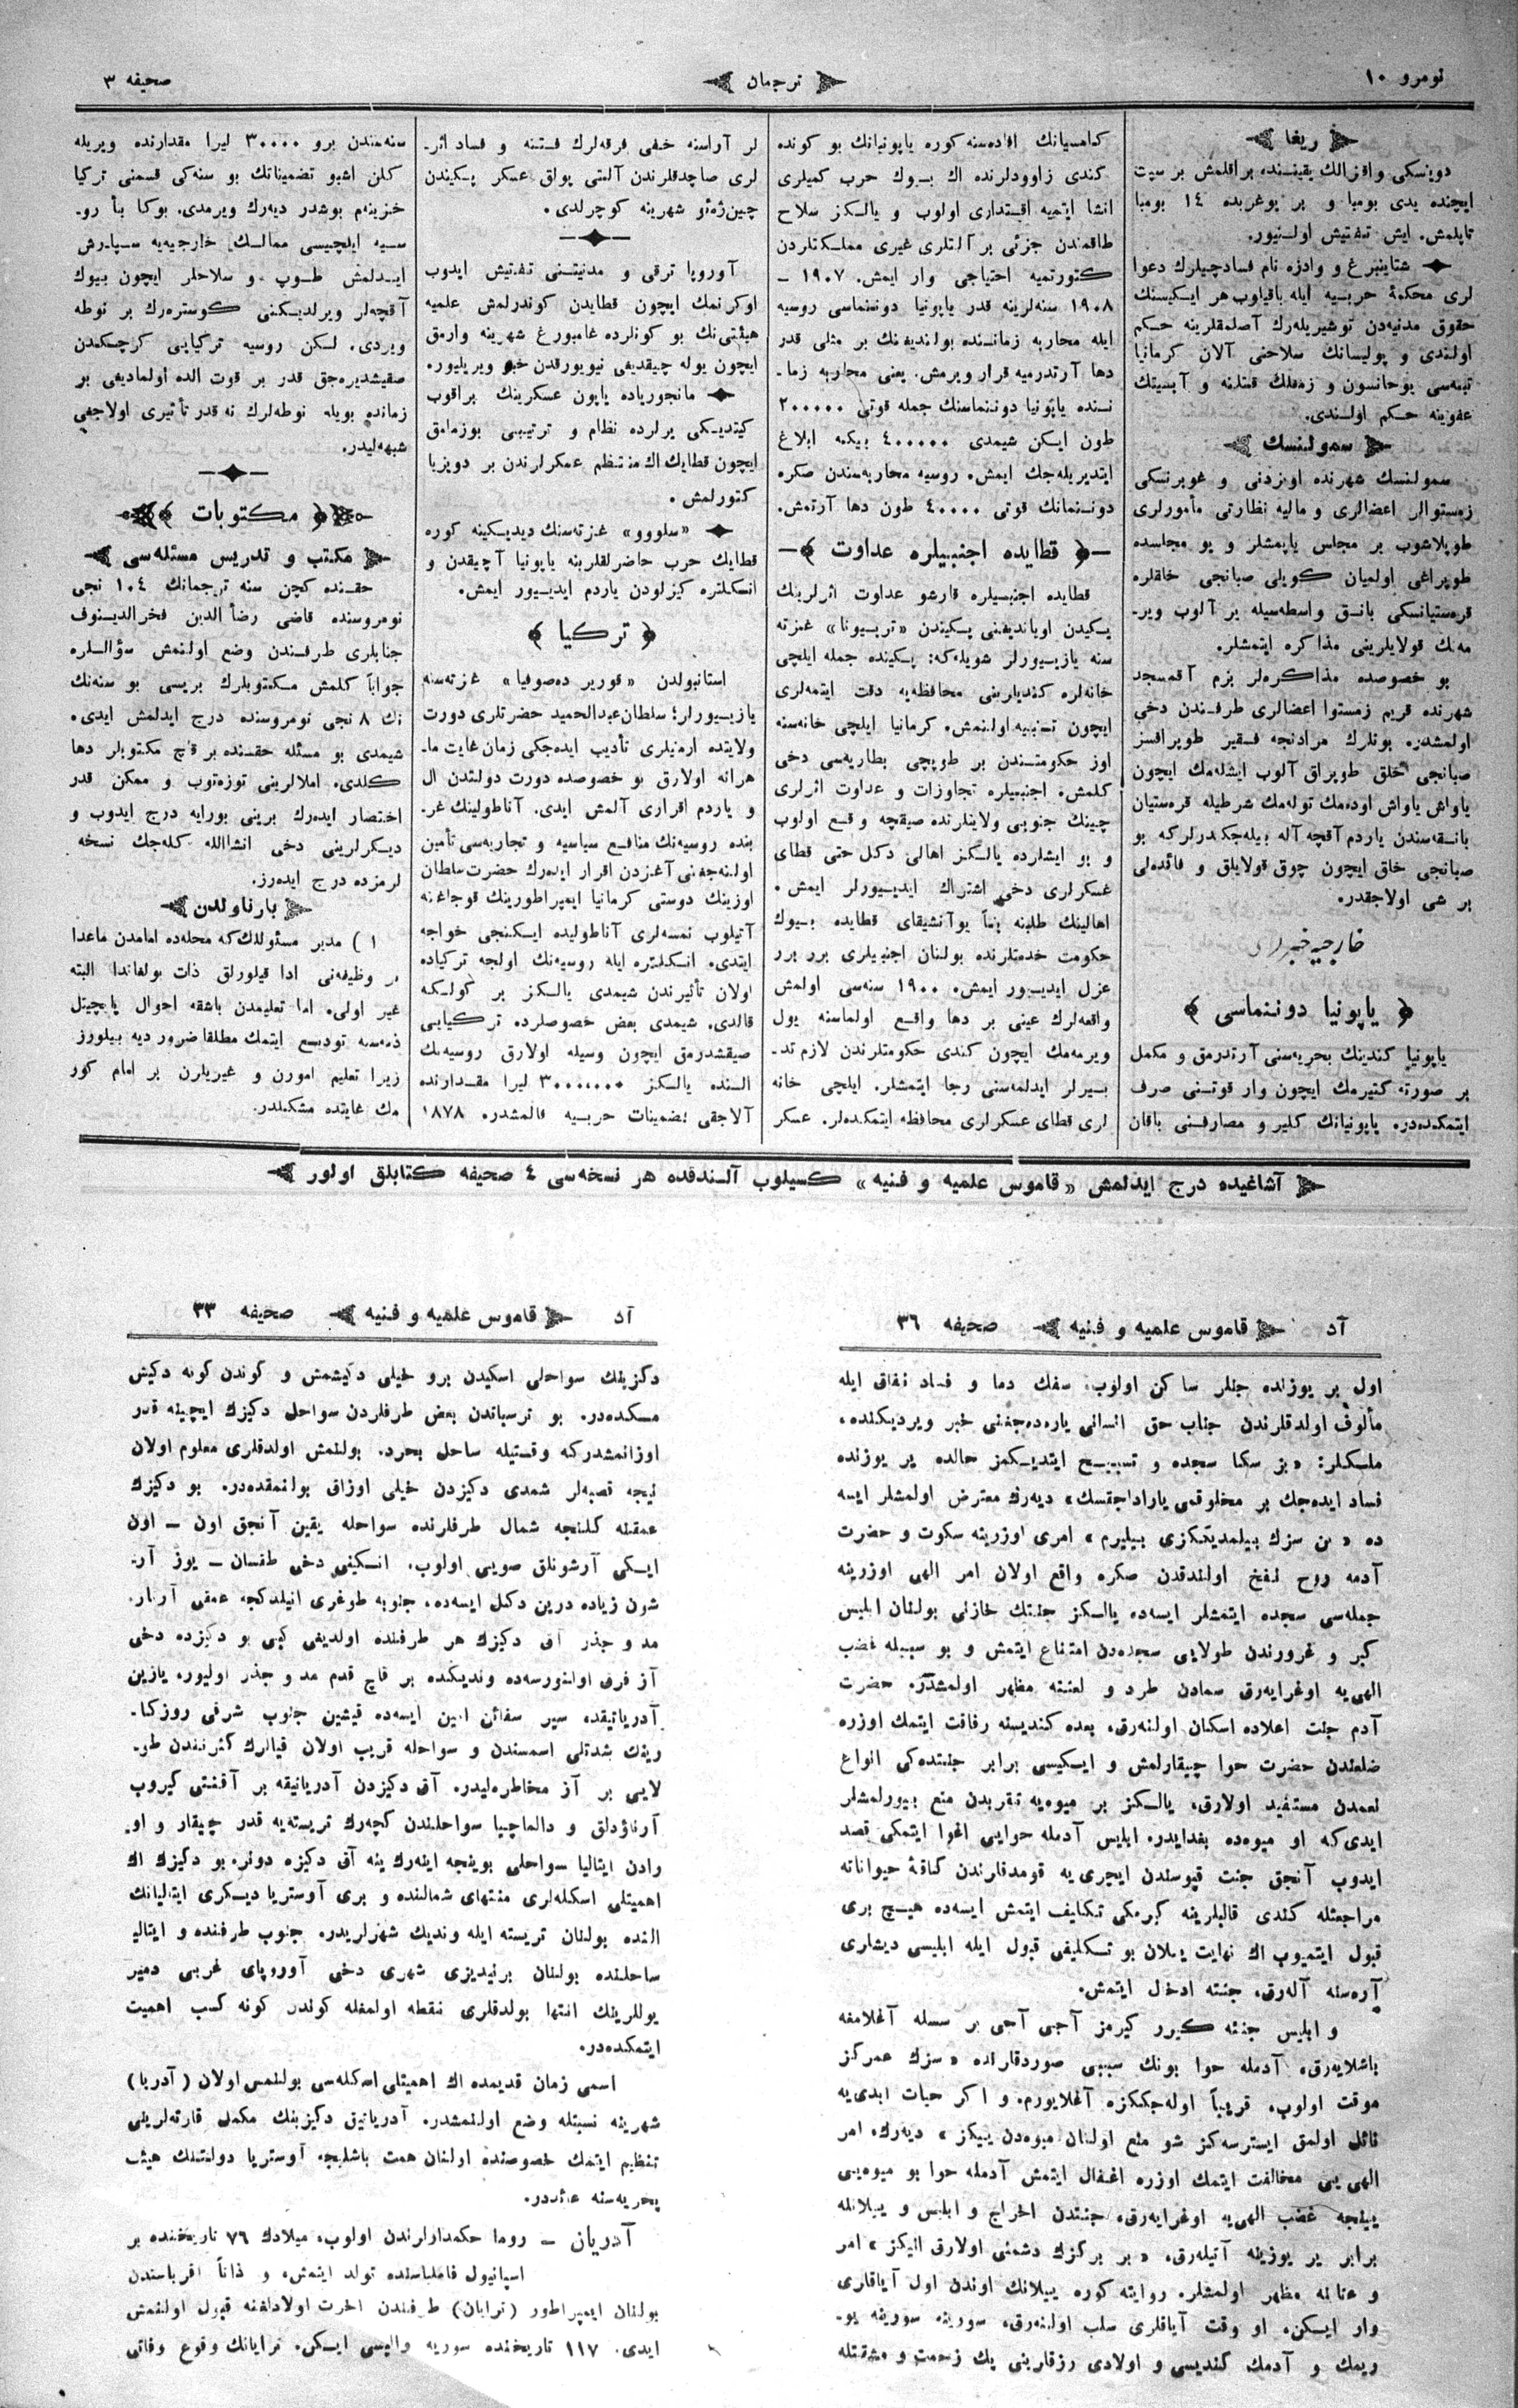 نومرو ١٠
ترجمان
صحیفه ٣
ریغا
دوینسکی واقزالك یقیننده براقلمش بر سیت
ایچنده یدی بومبا و بر یوغربده ١٤ بومبا
تاپلمش. ایش تفتیش اولنیور.
شتاینبرغ و وادزه نام فسادچیلرك دعوا
لری محکمهٔ حربیه ایله باقیلوب هر ایکیسنك
حقوق مدنیه‌دن توشیریله‌رك آصلمقلرینه حکم
اولندی و پولیسانك سلاحنی آلان کرمانیا
تبعه‌سی یوحانسون و زمغلك قتلنه و آبسیتك
عفوینه حکم اولندی.
سمولنسك
سمولنسك شهرنده اویزدنی و غوبرنسکی
زمستوالر اعضالری و مالیه نظارتی مأمورلری
طوپلاشوب بر مجلس یاپمشلر و بو مجلسده
طوپراغی اولمیان کویلی صبانجی خلقلره
قره‌ستیانسکی بانق واسطه‌سیله یر آلوب ویر-
مه‌نك قولایلرینی مذاکره ایتمشلر.
بو خصوصده مذاکره‌لر بزم آقمسجد
شهرنده قریم زمستوا اعضالری طرفندن دخی
اولمشدر. بونلرك مرادنجه فقیر طوپراقسز
صبانجی خلق طوپراق آلوب ایشله‌مك ایچون
یاواش یاواش اوده‌مك توله‌مك شرطیله قره‌ستیان
بانقه‌سندن یاردم آقچه آله بیله‌جکدرلرکه بو
صبانجی خلق ایچون چوق قولایلق و فائده‌لی
بر شی اولاجقدر.
خارجیه خبرلری
یاپونیا دوننماسی
یاپونیا کندینك بحریه‌سنی آرتدرمق و مکمل
بر صورته کتیرمك ایچون وار قوتنی صرف
ایتمکده‌در. یاپونیانك کلیر و مصارفنی باقان
کامسیانك افاده‌سنه کوره یاپونیانك بو کونده
کندی زاوودلرنده اك بیوك حرب کمیلری
انشا ایتمیه اقتداری اولوب و یالکز سلاح
طاقمندن جزئی بر آلتلری غیری مملکتلردن
کتورتمیه احتیاجی وار ایمش. ١٩٠٧ –
١٩٠٨ سنه‌لرینه قدر یاپونیا دوننماسی روسیه
ایله محاربه زماننده بولندیغنك بر مثلی قدر
دها آرتدرمیه قرار ویرمش. یعنی محاربه زما-
ننده یاپونیا دوننماسنك جمله قوتی ٢٠٠٠٠٠
طون ایکن شیمدی ٤٠٠٠٠٠ بیکمه ابلاغ
ایتدیریله‌جك ایمش. روسیه محاربه‌سندن صکره
دوننمانك قوتی ٤٠٠٠٠ طون دها آرتمش.
قطایده اجنبیلره عداوت
قطایده اجنبیلره قارشو عداوت اثرلرینك
یکیدن اویاندیغنی پکیندن «تریبونا» غزته
سنه یازیورلر شویله‌که: پکینده جمله ایلچی
خانه‌لره کندیلرینی محافظه‌یه دقت ایتمه‌لری
ایچون تنبیه اولنمش. کرمانیا ایلچی خانه‌سنه
اوز حکومتندن بر طوپچی بطاریه‌سی دخی
کلمش. اجنبیلره تجاوزات و عداوت اثرلری
چینك جنوبی ولایتلرنده صیقچه وقع اولوب
و بو ایشلرده یالکز اهالی دکل حتی قطای
عسکرلری دخی اشتراك ایدیورلر ایمش.
اهالینك طلبنه بناً یوآنشیقای قطایده بیوك
حکومت خدمتلرنده بولنان اجنبیلری برر برر
عزل ایدیور ایمش. ١٩٠٠ سنه‌سی اولمش
واقعه‌لرك عینی بر دها واقع اولماسنه یول
ویرمه‌مك ایچون کندی حکومتلرندن لازم تد-
بیرلر ایدلمه‌سنی رجا ایتمشلر. ایلچی خانه
لری قطای عسکرلری محافظه ایتمکده‌لر. عسکر
لر آراسنه خفی فرقه‌لرك فتنه و فساد اثر-
لری صاچدقلرندن آلتی پولق عسکر پکیندن
چین‌ژه‌ئو شهرینه کوچرلدی.
آوروپا ترقی و مدنیتنی تفتیش ایدوب
اوکرنمك ایچون قطایدن کوندرلمش علمیه
هیئتی‌نك بو کونلرده غامبورغ شهرینه وارمق
ایچون یوله چیقدیغی نیویورقدن خبر ویریلیور.
مانجوریاده یاپون عسکرینك براقوب
کیتدیکی یرلرده نظام و ترتیبی بوزمامق
ایچون قطایك اك منتظم عسکرلرندن بر دویزیا
کتورلمش.
«سلووو» غزته‌سنك دیدیکینه کوره
قطایك حرب حاضرلقلرینه یاپونیا آچیقدن و
انکلتره کیزلودن یاردم ایدیور ایمش.
ترکیا
استانبولدن «قوریر ده‌صوفیا» غزته‌سنه
یازیورلر؛ سلطان عبدالحمید حضرتلری دورت
ولایتده ارمنیلری تأدیب ایده‌جکی زمان غایت ما-
هرانه اولارق بو خصوصده دورت دولتدن ال
و یاردم اقراری آلمش ایدی. آناطولینك غر-
بنده روسیه‌نك منافع سیاسیه و تجاربه‌سی تأمین
اولنه‌جغنی آغزدن اقرار ایده‌رك حضرت سلطان
اوزینك دوستی کرمانیا ایمپراطورینك قوجاغنه
آتیلوب نمسه‌لری آناطولیده ایکنجی خواجه
ایتدی. انکلتره ایله روسیه‌نك اولجه ترکیاده
اولان تأثیرندن شیمدی یالکز بر کولکه
قالدی. شیمدی بعض خصوصلرده ترکیایی
صیقشدرمق ایچون وسیله اولارق روسیه‌نك
النده یالکز ٣٠٠٠٠٠٠٠ لیرا مقدارنده
آلاجقی تضمینات حربیه قالمشدر. ١٨٧٨
سنه‌سندن برو ٣٠٠٠٠ لیرا مقدارنده ویریله
کلن اشبو تضمیناتك بو سنه‌کی قسمنی ترکیا
خزینه‌م بوشدر دیه‌رك ویرمدی. بوکا بناً رو-
سیه ایلچیسی ممالك خارجیه‌یه سپارش
ایدلمش طوپ و سلاحلر ایچون بیوك
آقچه‌لر ویرلدیکنی کوستره‌رك بر نوطه
ویردی. لکن روسیه ترکیایی کرچکدن
صقیشدیره‌جق قدر بر قوت الده اولمادیغی بر
زمانده بویله نوطه‌لرك نه قدر تأثیری اولاجغی
شبهه‌لیدر.
مکتوبات
مکتب و تدریس مسئله‌سی
حقنده کچن سنه ترجمانك ١٠٤ نجی
نومروسنده قاضی رضاً الدین فخرالدینوف
جنابلری طرفندن وضع اولنمش سؤاللره
جواباً کلمش مکتوبلرك بریسی بو سنه‌نك
نك ٨ نجی نومروسنده درج ایدلمش ایدی.
شیمدی بو مسئله حقنده بر قاچ مکتوبلر دها
کلدی. املالرینی توزه‌توب و ممکن قدر
اختصار ایده‌رك برینی بورایه درج ایدوب و
دیکرلرینی دخی انشاالله کله‌جك نسخه
لرمزده درج ایده‌رز.
بارناولدن
١) مدیر مسئولك‌که محله‌ده امامدن ماعدا
بر وظیفه‌نی ادا قیلورلق ذات بولغاندا البته
غیر اولی. اما تعلیمدن باشقه احوال یاپچیتل
ذمه‌سنه تودیع ایتمك مطلقا ضرور دیه بیلورز
زیرا تعلیم امورن و غیریلرن بر امام کور
مك غایتده مشکلدر.
آشاغیده درج ایدلمش «قاموس علمیه و فنیه» کسیلوب آلندقده هر نسخه‌سی ٤ صحیفه کتابلق اولور
آد قاموس علمیه و فنیه صحیفه ٣٦
اول بر یوزنده جنلر ساکن اولوب، سفك دما و فساد نفاق ایله
مألوف اولدقلرندن جناب حق انسانی یاره‌ده‌جغنی خبر ویردیکنده،
ملکلر: «بز سکا سجده و تسبیح ایتدیکمز حالده یر یوزنده
فساد ایده‌جك بر مخلوقمی یاراداجقسك» دیه‌رك معترض اولمشلر ایسه
ده «بن سزك بیلمدیککزی بیلیرم» امری اوزرینه سکوت و حضرت
آدمه روح نفخ اولندقدن صکره واقع اولان امر الهی اوزرینه
جمله‌سی سجده ایتمشلر ایسه‌ده یالکز جنتك خازنی بولنان ابلیس
کبر و غرورندن طولایی سجده‌دن امتناع ایتمش و بو سببله غضب
الهی‌یه اوغرایه‌رق سمادن طرد و لعنته مظهر اولمشدر. حضرت
آدم جنت اعلاده اسکان اولنه‌رق، بعده کندیسنه رفاقت ایتمك اوزره
ضلعندن حضرت حوا چیقارلمش و ایکیسی برابر جنتده‌کی انواع
نعمدن مستفید اولارق، یالکز بر میوه‌یه تقربدن منع بیورلمشلر
ایدی‌که او میوه‌ده بغدایدر. ابلیس آدمله حوایی اغوا ایتمکی قصد
ایدوب آنجق جنت قپوسندن ایچری یه قومدقلرندن کافهٔ حیواناته
مراجعتله کندی قالبلرینه کیرمکی تکلیف ایتمش ایسه‌ده هیچ بری
قبول ایتمیوب اك نهایت ییلان بو تکلیفی قبول ایله ابلیسی دیشلری
آره‌سنه آله‌رق، جنته ادخال ایتمش.
و ابلیس جنته کیرر کیرمز آجی آجی بر سسله آغلامغه
باشلایه‌رق، آدمله حوا بونك سببی صوردقلرنده «سزك عمرکز
موقت اولوب، قریباً اوله‌جککزه آغلایورم. و اکر حیات ابدی‌یه
نائل اولمق ایسترسه‌کز شو منع اولنان میوه‌دن ییکز» دیه‌رك، امر
الهی یی مخالفت ایتمك اوزره اغفال ایتمش آدمله حوا بو میوه‌یی
یینجه غضب الهی‌یه اوغرایه‌رق، جنتدن اخراج و ابلیس و ییلانله
برابر یر یوزینه آتیله‌رق، «بر برکزك دشمنی اولارق اینکز» امر
و عتابنه مظهر اولمشلر. روایته کوره ییلانك اوندن اول آیاقلری
وار ایکن، او وقت آیاقلری سلب اولنه‌رق، سورینه سورینه یو-
ریمك و آدمك کندیسی و اولادی رزقلرینی پك زحمت و مشقتله
آد قاموس علمیه و فنیه صحیفه ٣٣
دکزینك سواحلی اسکیدن برو خیلی دکیشمش و کوندن کونه دکیش
مکده‌در. بو ترسباتدن بعض طرفلردن سواحل دکیزك ایچینه قدر
اوزانمشدرکه وقتیله ساحل بحرد. بولنمش اولدقلری معلوم اولان
نیجه قصبه‌لر شمدی دکیزدن خیلی اوزاق بولنمقده‌در. بو دکیزك
عمقنه کلنجه شمال طرفلرنده سواحله یقین آنجق اون – اون
ایکی آرشونلق صویی اولوب. انکینی دخی طقسان – یوز آر-
شون زیاده درین دکل ایسه‌ده، جنوبه طوغری انیلدکجه عمقی آرتار.
مد و جذر آق دکیزك هر طرفنده اولدیغی کبی بو دکیزده دخی
آز فرق اولنورسه‌ده وندیکده بر قاچ قدم مد و جذر اولیور. یازین
آدریاتیقده سیر سفائن امین ایسه‌ده قیشین جنوب شرقی روزکا-
رینك شدتلی اسمسندن و سواحله قریب اولان قیالرك کثرتندن طو-
لایی بر آز مخاطره‌لیدر. آق دکیزدن آدریاتیقه بر آقنتی کیروب
آرناؤدلق و دالماچیا سواحلندن کچه‌رك تریسته‌یه قدر چیقار و او-
رادن ایتالیا سواحلی بوینجه اینه‌رك ینه آق دکیزه دونر. بو دکیزك اك
اهمیتلی اسکله‌لری منتهای شمالنده و بری آوستریا دیکری ایتالیانك
النده بولنان تریسته ایله وندیك شهرلریدر. جنوب طرفنده و ایتالیا
ساحلنده بولنان برندیزی شهری دخی آوروپای غربی دمیر
یوللرینك انتها بولدقلری نقطه اولمغله کوندن کونه کسب اهمیت
ایتمکده‌در.
اسمی زمان قدیمده اك اهمیتلی اسکله‌سی بولنمس اولان (آدریا)
شهرینه نسبتله وضع اولنمشدر. آدریاتیق دکیزینك مکمل قارته‌لرینی
تنظیم ایتمك خصوصنده اولنان همت باشلیجه آوستریا دولتنك هیئت
بحریه‌سنه عائددر.
آدریان – روما حکمدارلرندن اولوب، میلادك ٧٦ تاریخنده بر
اسپانیول فامیلیاسنده تولد ایتمش، و ذاتاً اقرباسندن
بولنان ایمپراطور (ترایان) طرفندن آخرت اولادلغنه قبول اولنمش
ایدی. ١١٧ تاریخنده سوریه والیسی ایکن. ترایانك وقوع وفاتی